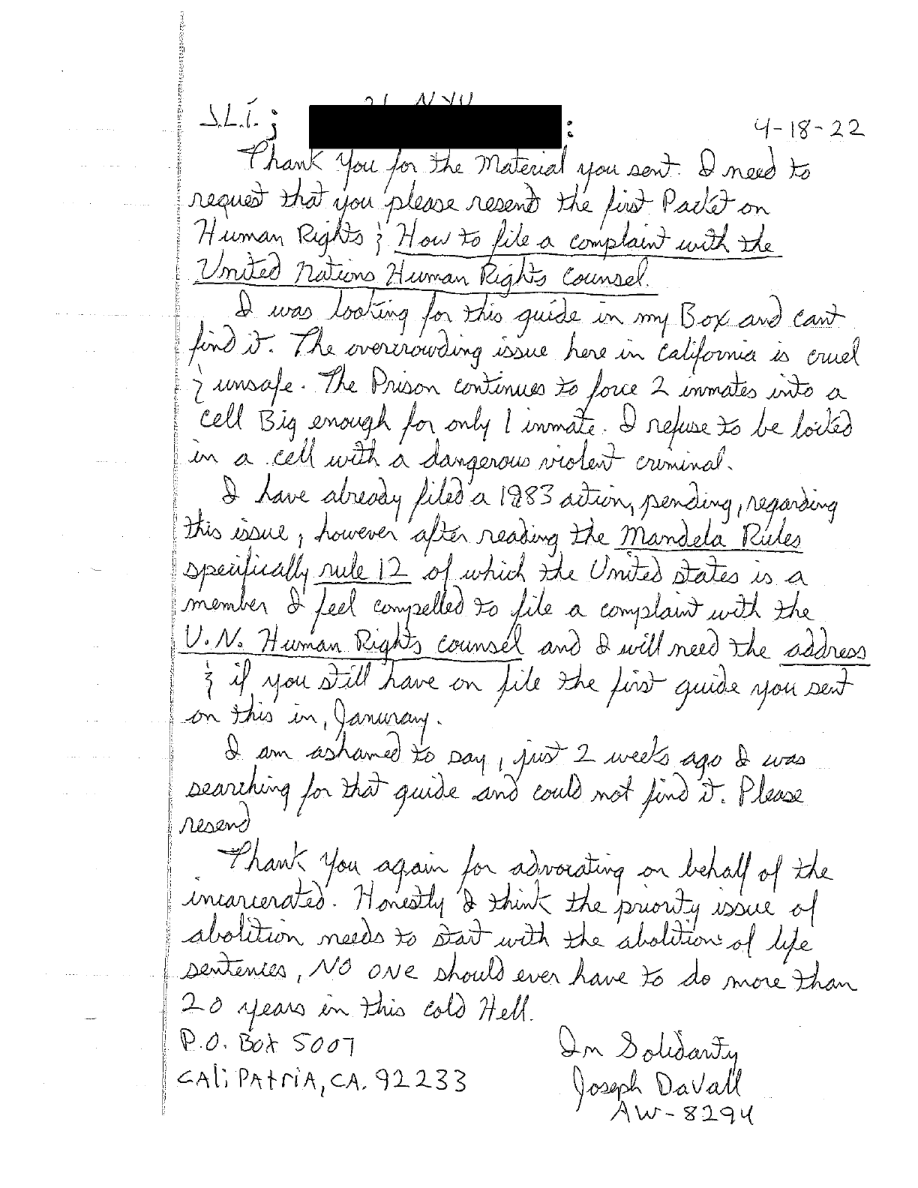 J.L.I. ; :
4-18-22
Thank you for the Material you sent. I need to
request that you please resend the first Packet on
Human Rights & How to file a complaint with the
United Nations Human Rights Counsel.
I was looking for this guide in my Box and cant
find it. The overcrowding issue here in California is cruel
& unsafe. The Prison continues to force 2 inmates into a
cell Big enough for only 1 inmate. I refuse to be locked
in a cell with a dangerous violent criminal.
I have already filed a 1983 action, pending, regarding
this issue, however after reading the Mandela Rules
specifically rule 12 of which the United States is a
member I feel compelled to file a complaint with the
U.N. Human Rights counsel and I will need the address
& if you still have on file the first guide you sent
on this in, Januray.
I am ashamed to say, just 2 weeks ago I was
searching for that guide and could not find it. Please
resend
Thank you again for advocating on behalf of the
incarcerated. Honestly I think the priority issue of
abolition needs to start with the abolition of life
sentences, NO ONE should ever have to do more than
20 years in this cold Hell.
P.O. Box 5007
CALiPATRiA, CA. 92233
In Solidarity
Joseph Davall
AW-8294